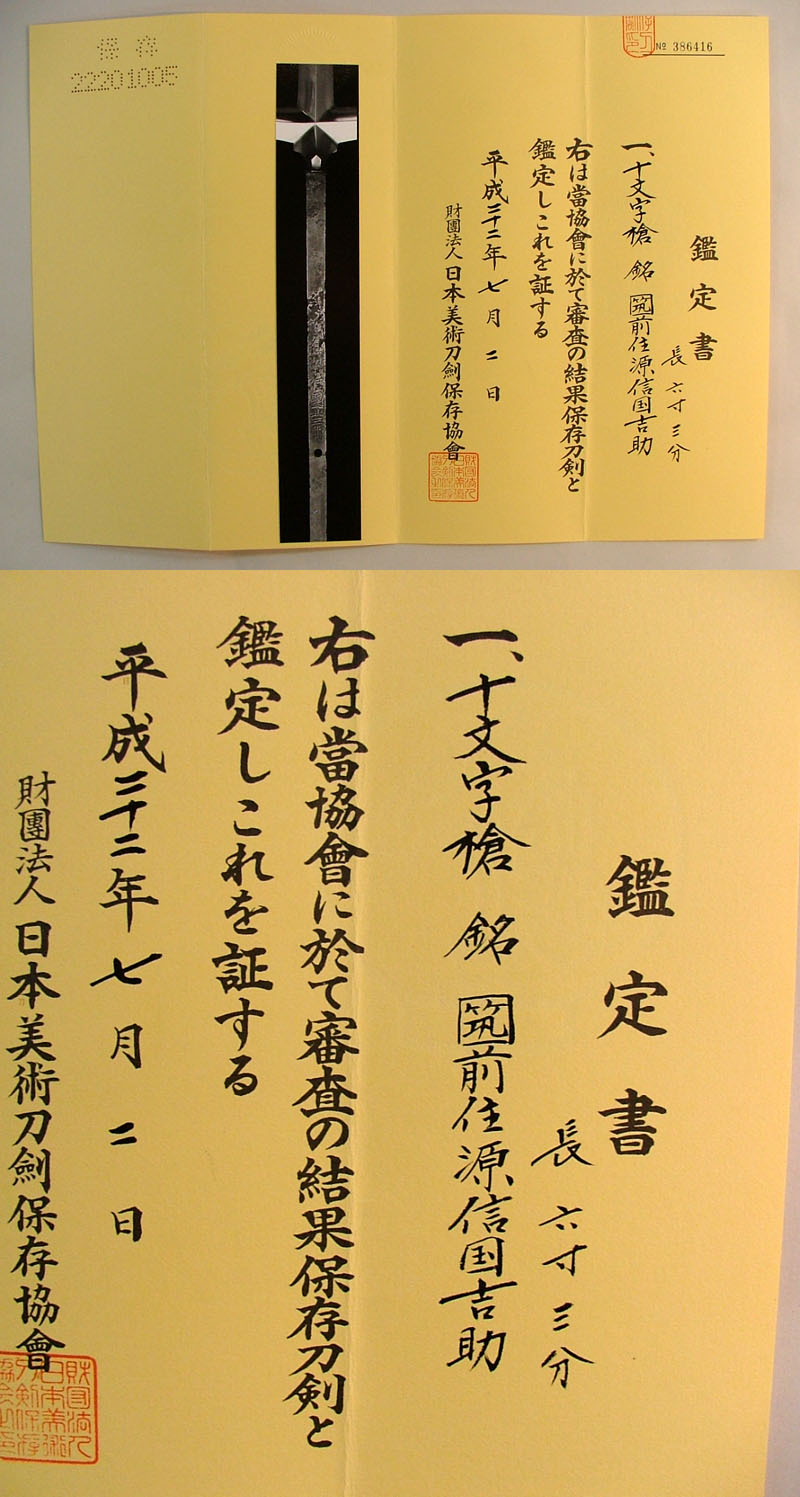 保存
22201005
No 386416
鑑定書
長 六寸三分
一、十文字槍 銘 筑前住源信国吉助
右は當協會に於て審査の結果保存刀剣と
鑑定しこれを証する
平成二十二年七月二日
財團法人 日本美術刀劍保存協會
鑑定書
長 六寸三分
一、十文字槍 銘 筑前住源信国吉助
右は當協會に於て審査の結果保存刀剣と
鑑定しこれを証する
平成二十二年七月二日
財團法人 日本美術刀劍保存協會